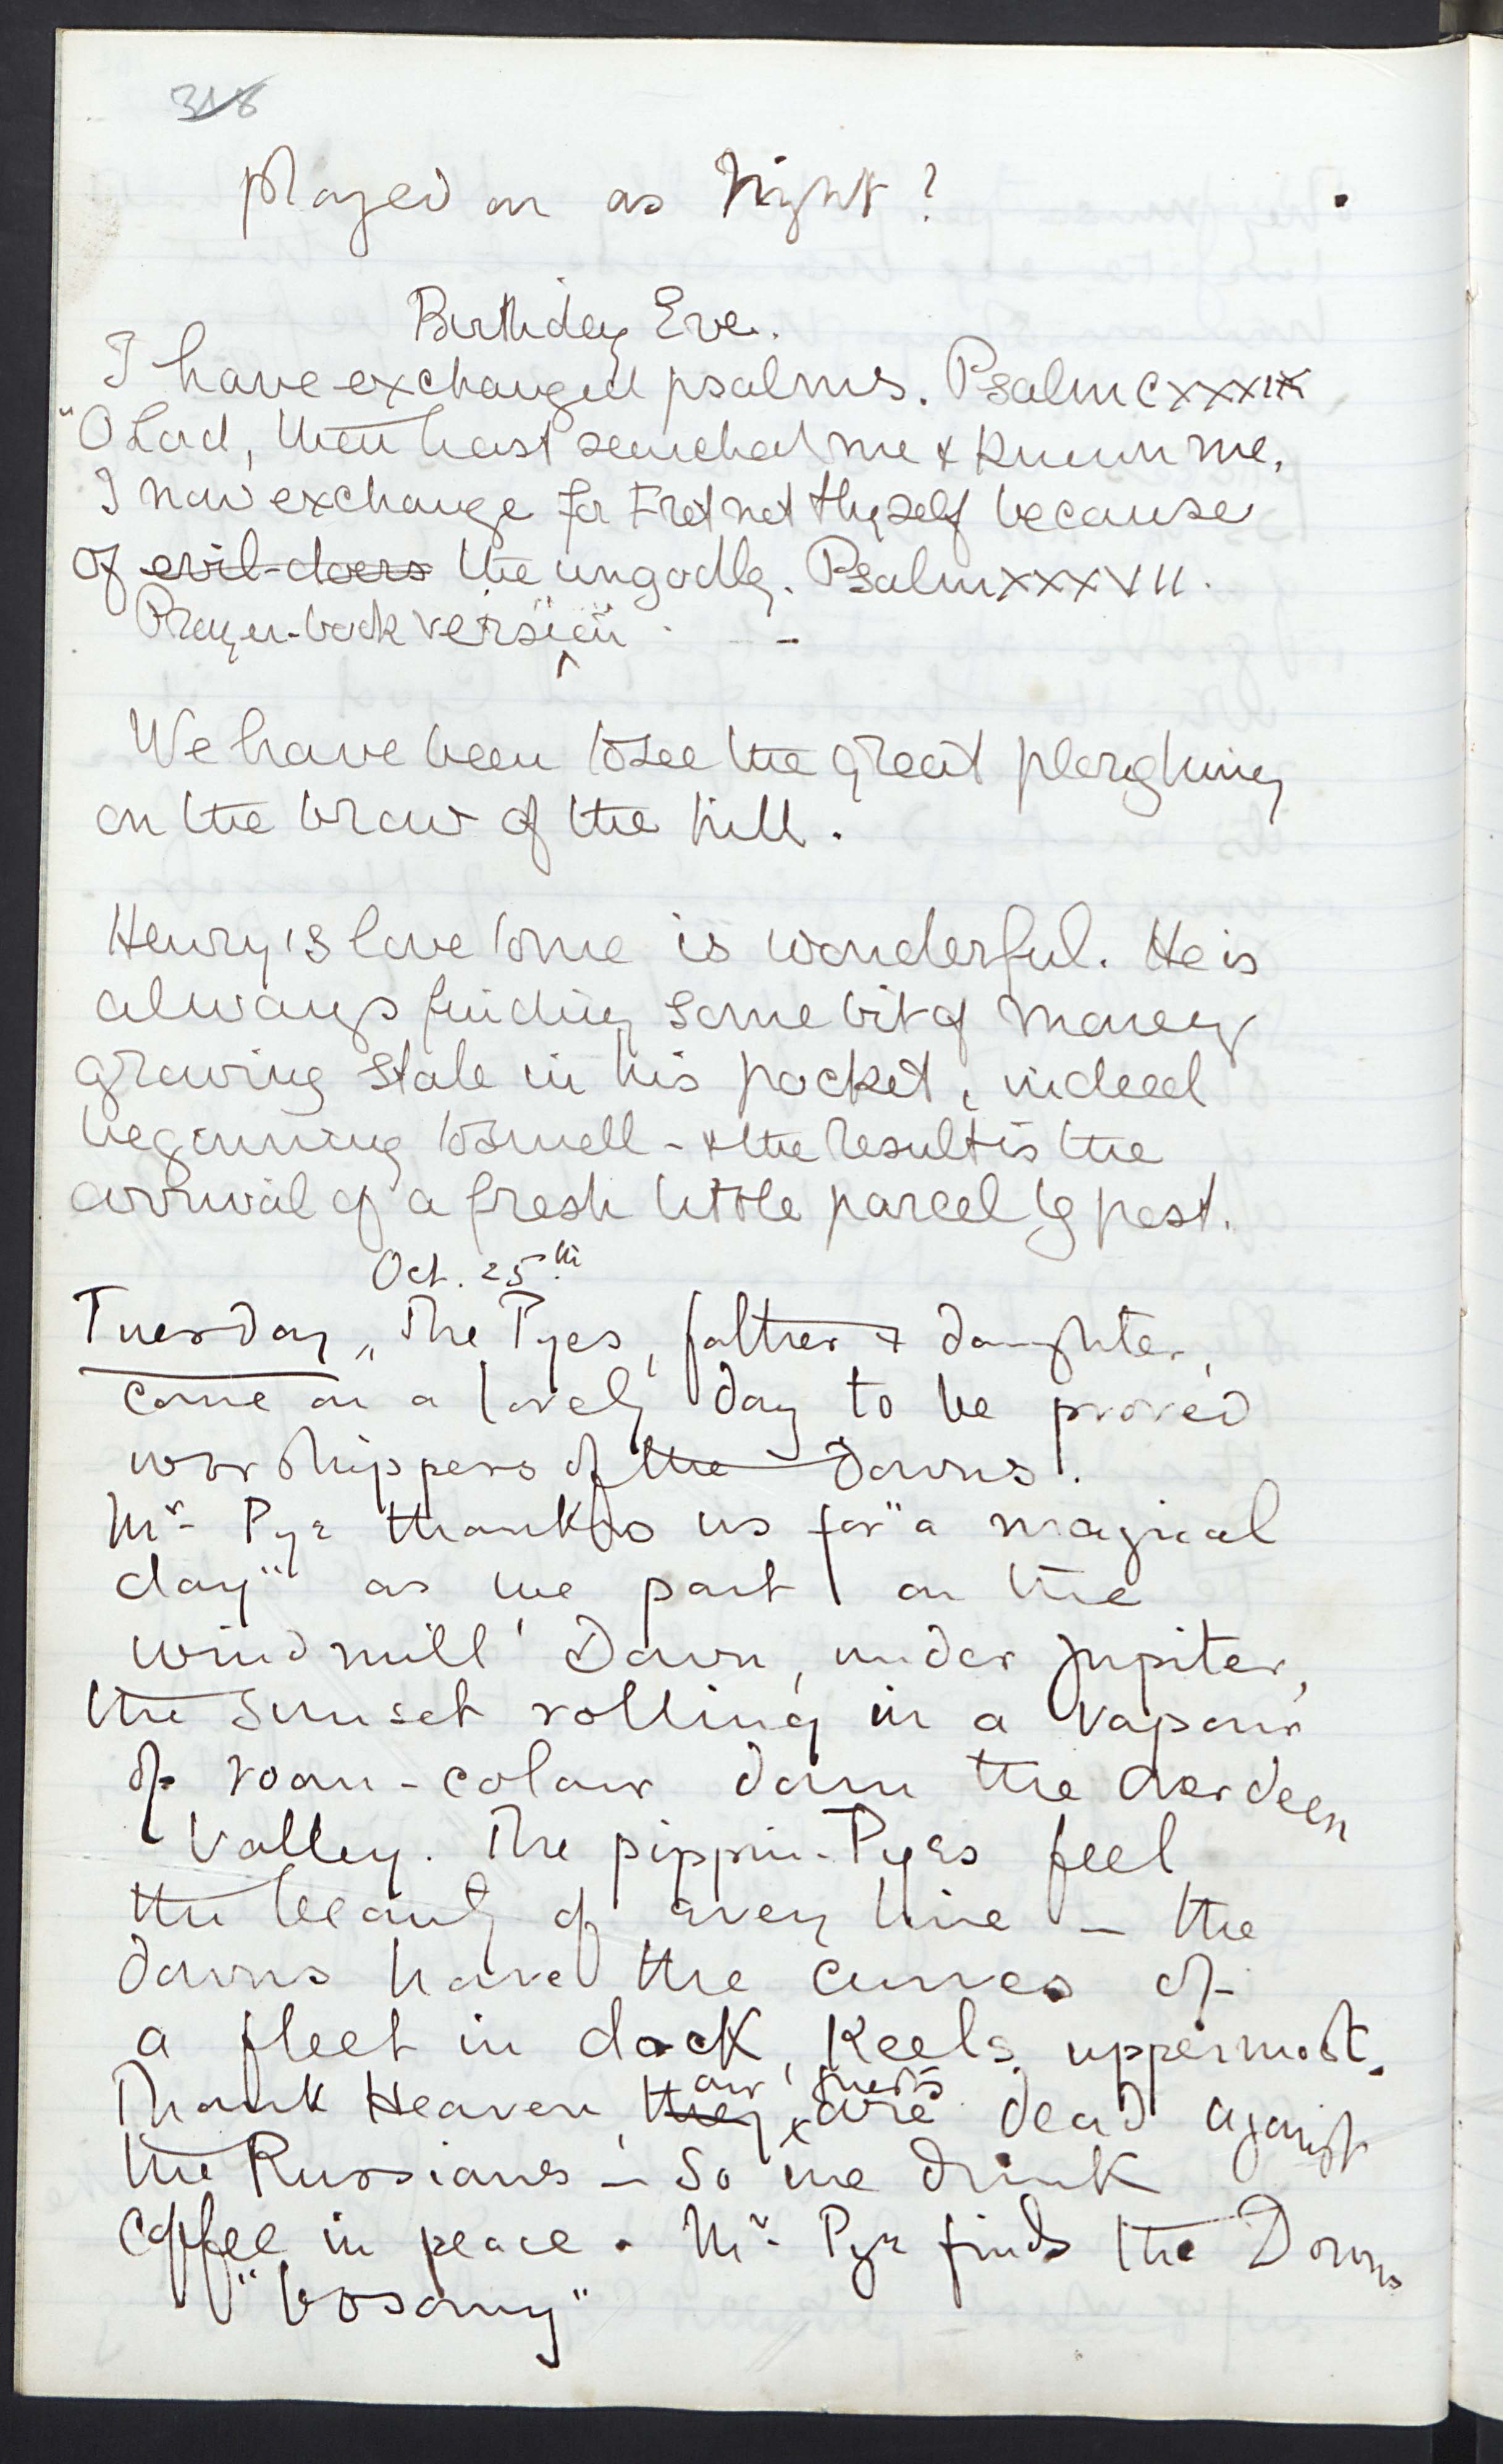 318
played on as Night?
Birthday Eve.
I have exchanged psalms. Psalm CXXXIX
"O Lord, thou hast searched me & known me.
I now exchange for Fret not thyself because
of evil-doers the ungodly. Psalm XXXVII.
Prayer-book version
We have been to see the great ploughing
on the brow of the hill.
Henry's love to me is wonderful. He is
always finding some bit of money
growing stale in his pocket, indeed
beginning to smell - & the result is the
arrival of a fresh little parcel by post.
Oct. 25th
Tuesday, The Pyes, father & daughter,
come on a lovely day to be proved
worshippers of the Downs.
Mr. Pye thanks us for "a magical
day" as we part on the
windmill Down, under Jupiter,
the sunset rolling in a vapour
of roan-colour down the
Valley. The pippin-Pyes feel
the beauty of every line - the
downs have the curves of
a fleet in dock, keels uppermost.
our guests
Thank Heaven, they are dead against
the Russians - So we drink
coffee in peace. Mr. Pye finds the Downs
"bosomy"